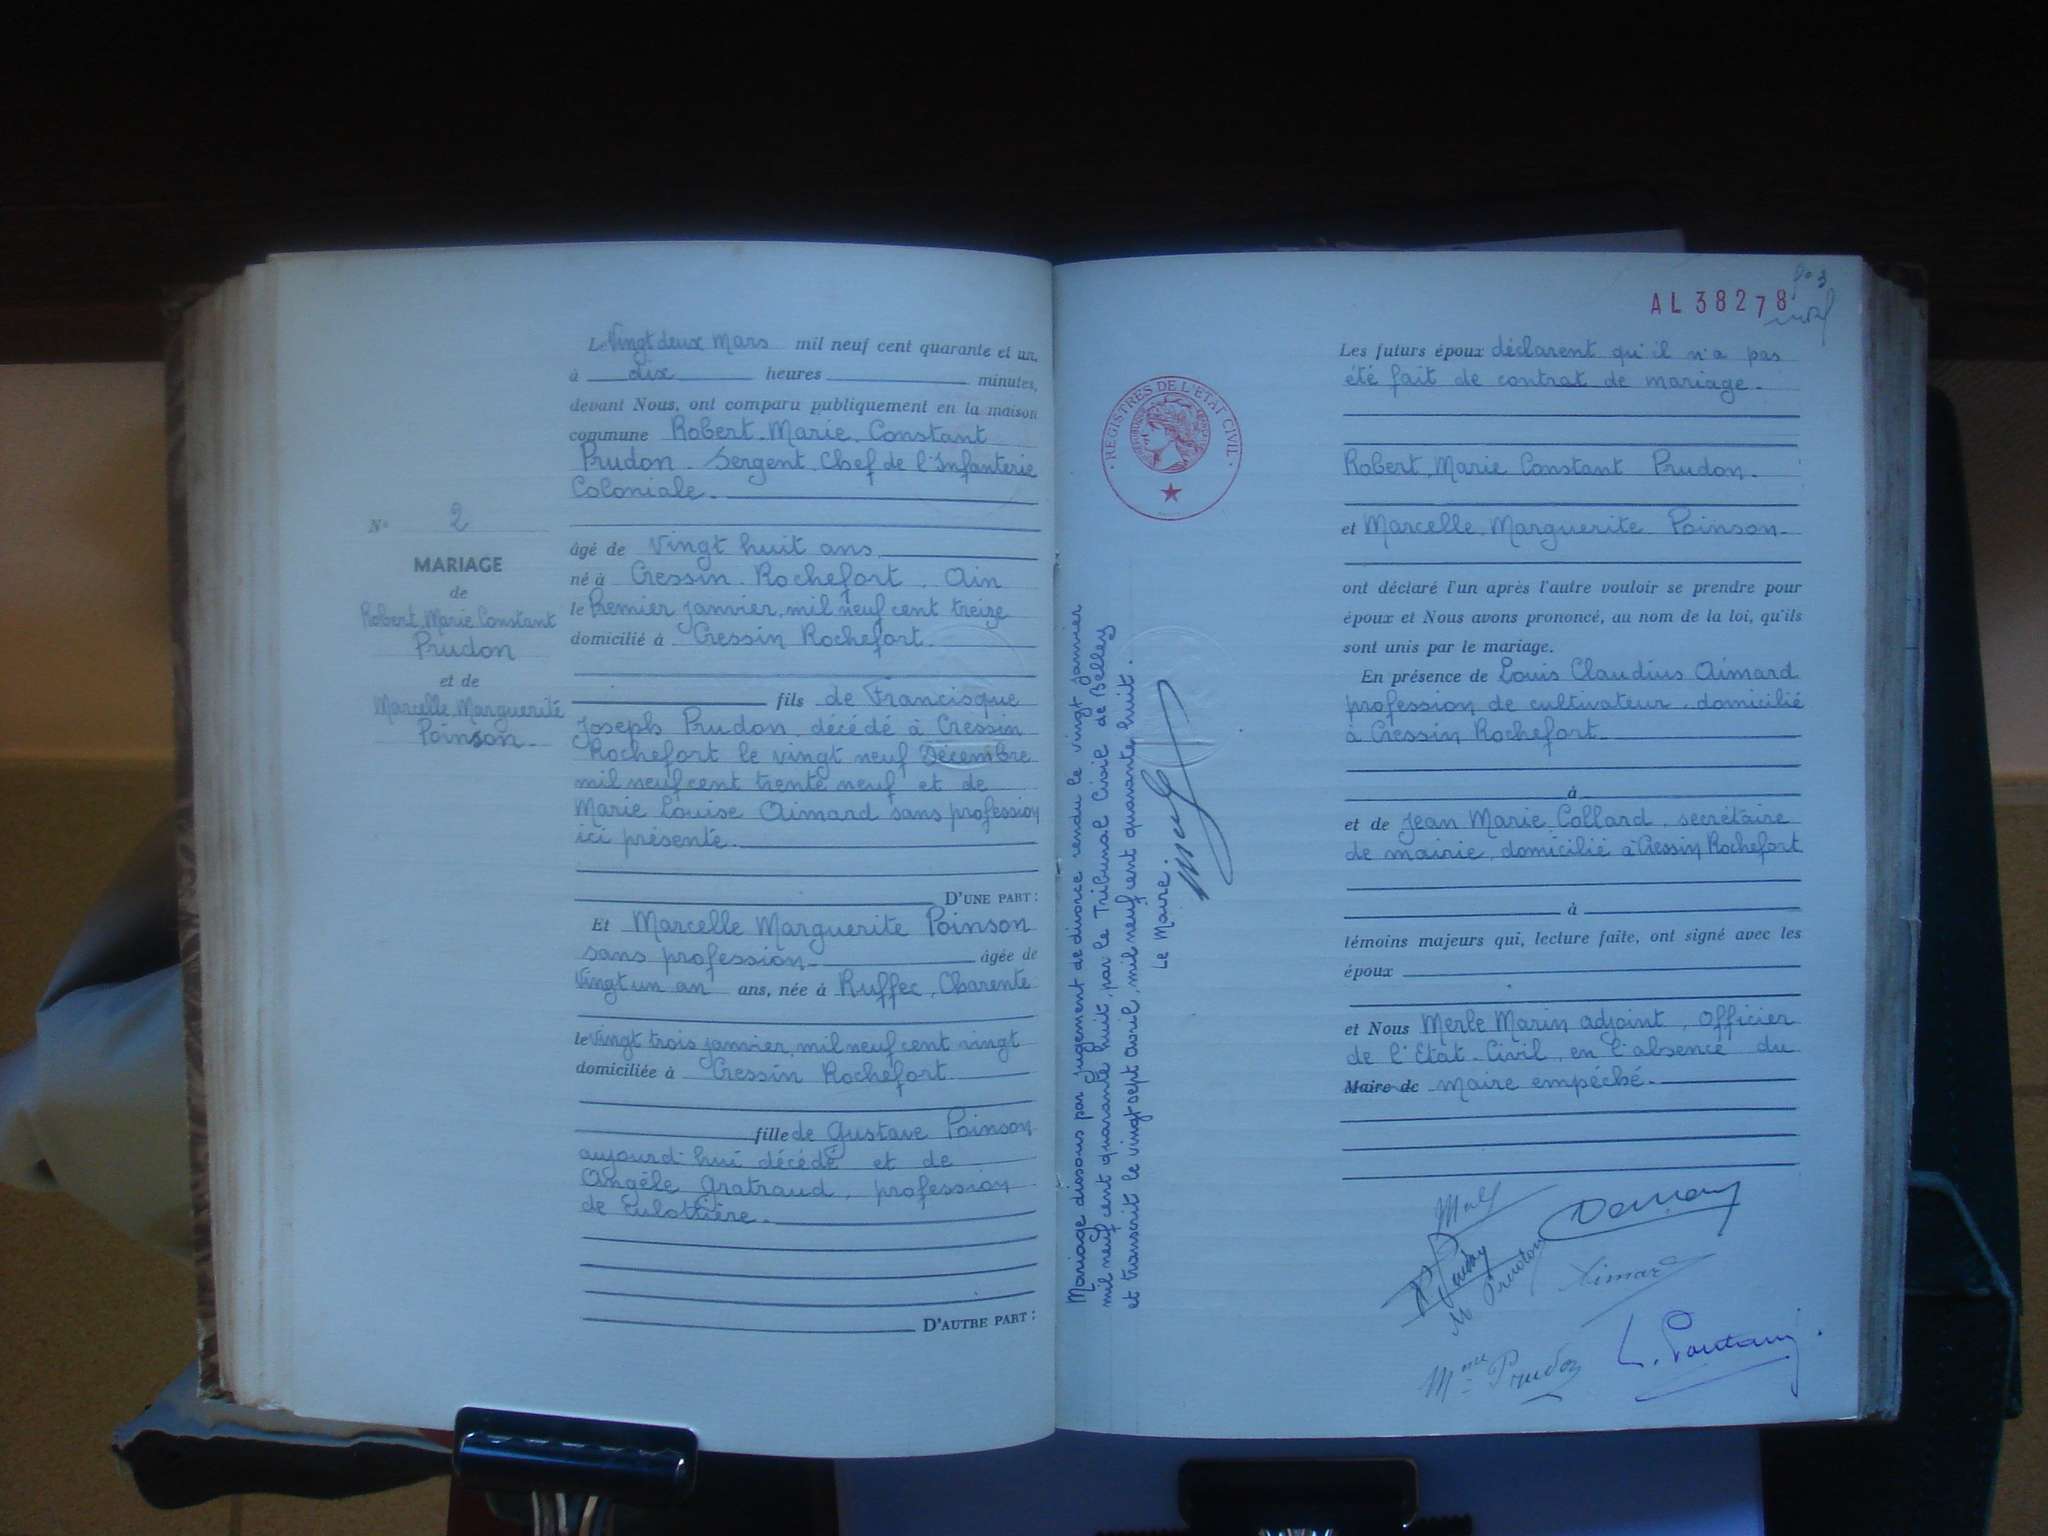 N° 2
MARIAGE
de
Robert, Marie Constant
Prudon
et de
Marcelle Marguerite
Poinson.
Le Vingt deux Mars mil neuf cent quarante et un,
à dix heures minutes,
devant Nous, ont comparu publiquement en la maison
commune Robert. Marie. Constant
Prudon. Sergent Chef de l'Infanterie
Coloniale.
âgé de Vingt huit ans
né à Cressin. Rochefort. Ain
le Premier janvier, mil neuf cent treize
domicilié à Cressin Rochefort.
fils de Francisque
Joseph Prudon, décédé à Cressin
Rochefort le vingt neuf Décembre
mil neuf cent trente neuf et de
Marie Louise Aimard sans profession
ici présente.
D'UNE PART :
Et Marcelle Marguerite Poinson
sans profession âgée de
Vingt un an ans, née à Ruffec, Charente
le Vingt trois janvier, mil neuf cent vingt
domiciliée à Cressin Rochefort
fille de Gustave Poinson
aujourd'hui décédé et de
Angèle Gratraud, profession
de Culottière.
D'AUTRE PART :
REGISTRES DE L'ETAT CIVIL
Mariage dissous par jugement de divorce rendu le vingt janvier
mil neuf cent quarante huit, par le Tribunal Civil de Belley
et transcrit le vingt sept avril, mil neuf cent quarante huit.
Le Maire.
AL 38278
Les futurs époux déclarent qu'il n'a pas
été fait de contrat de mariage.
Robert, Marie Constant Prudon.
et Marcelle, Marguerite Poinson.
ont déclaré l'un après l'autre vouloir se prendre pour
époux et Nous avons prononcé, au nom de la loi, qu'ils
sont unis par le mariage.
En présence de Louis Claudius Aimard
profession de cultivateur, domicilié
à Cressin Rochefort.
à
et de Jean Marie Collard, secrétaire
de mairie, domicilié à Cressin Rochefort
à
témoins majeurs qui, lecture faite, ont signé avec les
époux
et Nous Merle Marin adjoint, officier
de l'Etat-Civil, en l'absence du
Maire de maire empéché.
M Prudon
Aimard
Mme Prudon